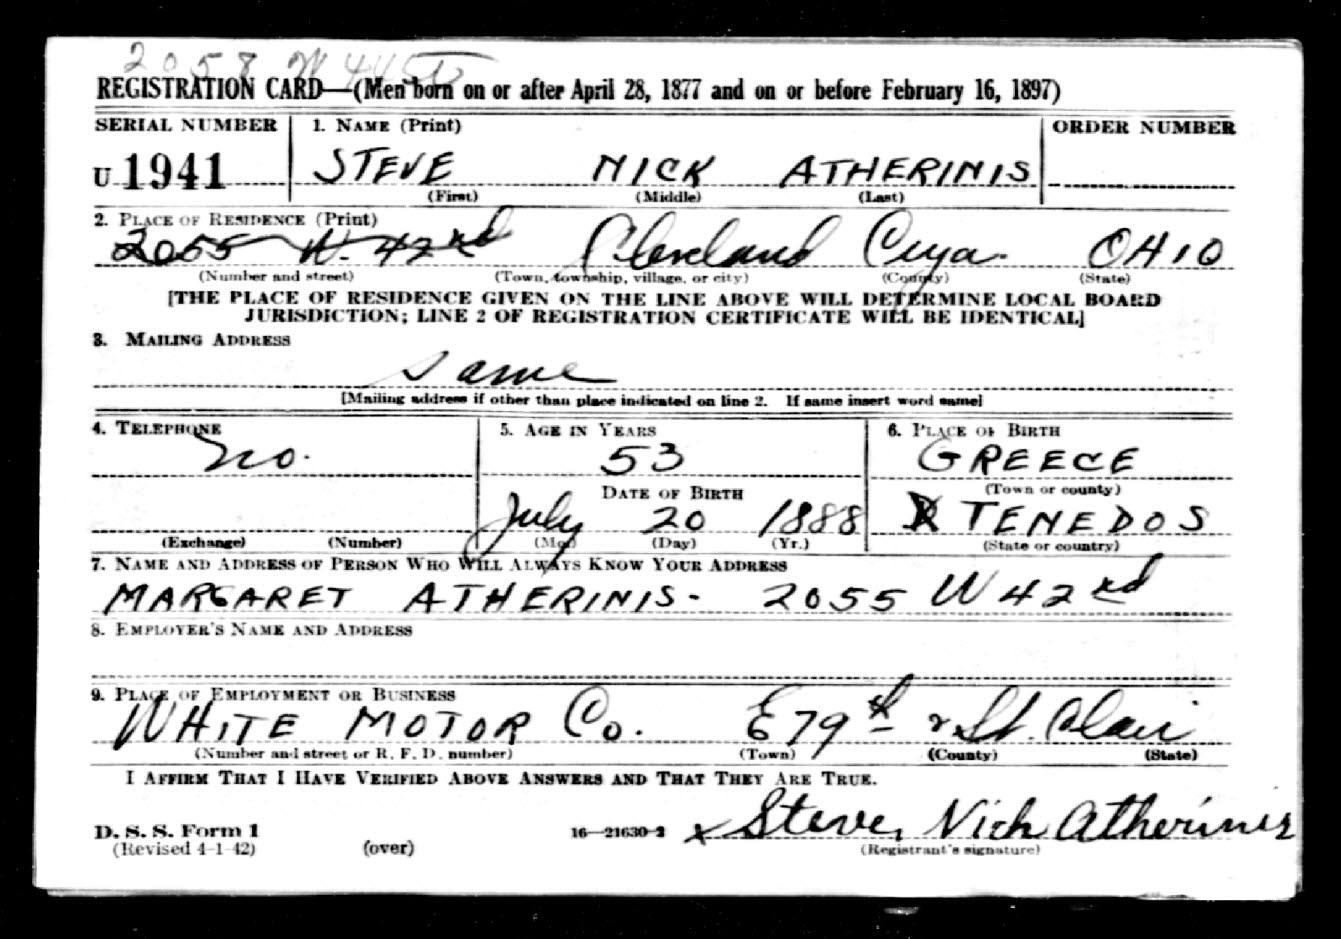 2058 W 44 St
REGISTRATION CARD—(Men born on or after April 28, 1877 and on or before February 16, 1897)
SERIAL NUMBER 1. NAME (Print) ORDER NUMBER
U 1941 STEVE NICK ATHERINIS
(First) (Middle) (Last)
2. PLACE OF RESIDENCE (Print)
2055 W. 42nd Cleveland Cuya. OHIO
(Number and street) (Town, township, village, or city) (County) (State)
[THE PLACE OF RESIDENCE GIVEN ON THE LINE ABOVE WILL DETERMINE LOCAL BOARD
JURISDICTION; LINE 2 OF REGISTRATION CERTIFICATE WILL BE IDENTICAL]
3. MAILING ADDRESS
Same
[Mailing address if other than place indicated on line 2. If same insert word same]
4. TELEPHONE 5. AGE IN YEARS 6. PLACE OF BIRTH
No. 53 GREECE
(Town or county)
DATE OF BIRTH
July 20 1888 TENEDOS
(Exchange) (Number) (Mo.) (Day) (Yr.) (State or country)
7. NAME AND ADDRESS OF PERSON WHO WILL ALWAYS KNOW YOUR ADDRESS
MARGARET ATHERINIS- 2055 W 42nd
8. EMPLOYER'S NAME AND ADDRESS
9. PLACE OF EMPLOYMENT OR BUSINESS
WHITE MOTOR Co. E 79th & St. Clair
(Number and street or R. F. D. number) (Town) (County) (State)
I AFFIRM THAT I HAVE VERIFIED ABOVE ANSWERS AND THAT THEY ARE TRUE.
x Steve Nick Atherinis
D. S. S. Form 1 16—21630-2
(Revised 4-1-42) (over) (Registrant's signature)